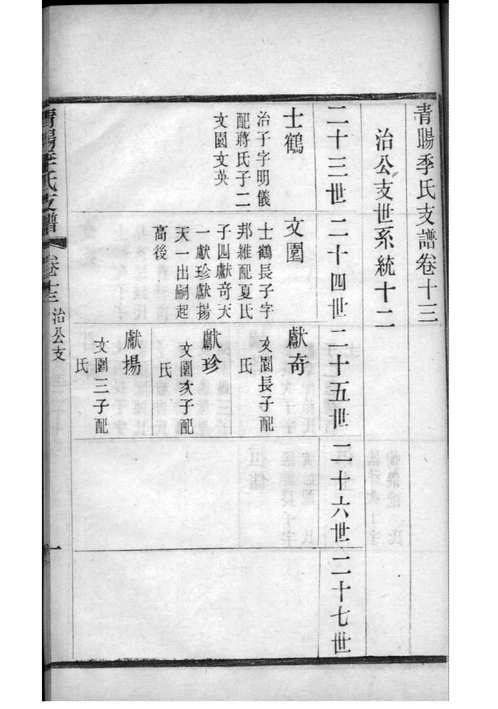 青暘季氏支譜卷十三
治公支世系統十二
二十三世
二十四世
二十五世
二十六世
二十七世
士鶴
治子字明儀
配蔣氏子二
文園文英
文園
士鶴長子字
邦維配夏氏
子四獻奇天
一獻珍獻揚
天一出嗣起
高後
獻奇
文園長子配
氏
獻珍
文園次子配
氏
獻揚
文園三子配
氏
青暘季氏支譜
卷十三
治公支
一